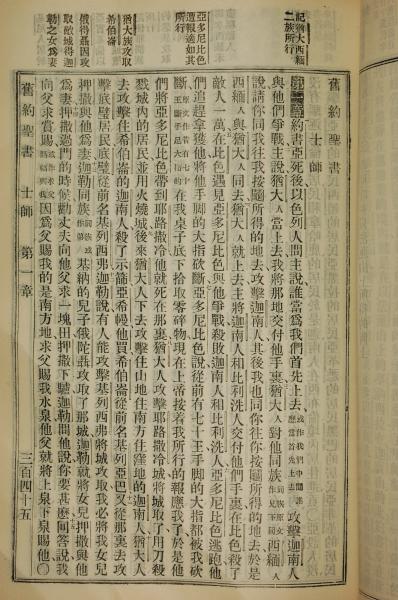 記猶大西緬
二族所行
亞多尼比色
遭報適如其
所行
猶大族攻取
希伯崙
俄得聶因攻
取底城得迦
勒之女爲妻
舊約聖書 士師
約書亞死後以色列人問主說誰當爲我們首先上去攻擊迦南人
與他們爭戰主說猶大當上去我將那地交付他手裏猶大對他同族西緬
說請你同我往我按鬮所得的地去攻擊迦南人其後我也同你往你按鬮所得的地去於是
西緬人與猶大人同去猶大人就上去主將迦南人和比利洗人交付他們手裏在比色殺了
敵人一萬在比色遇見亞多尼比色與他爭戰殺敗迦南人和比利洗人亞多尼比色逃跑他
們追趕拿獲他將他手脚的大指砍斷亞多尼比色說從前有七十王手脚的大指都被我砍
斷在我桌子底下拾取零碎物現在上帝按着我所行的報應我了於是他
們將亞多尼比色帶到耶路撒冷他就死在那裏猶大人攻擊耶路撒冷將城攻取了用刀殺
戮城內的居民並用火燒城後來猶大人下去攻擊住山地住南方住窪地的迦南人猶大人
去攻擊住希伯崙的迦南人殺了示篩亞希幔他買希伯崙從前名基列亞巴又從那裏去攻
擊底璧居民底璧從前名基列西弗迦勒說有人能攻擊基列西弗將城攻取我必將我女兒
押撒與他爲妻迦勒同族基納的兒子俄陀聶攻取了那城迦勒就將女兒押撒與他
爲妻押撒過門的時候勸丈夫向他父求一塊田押撒下驢迦勒問他說你要甚麽囘答說我
向父求賞賜因爲父賜我的是南方地求父賜我水泉他父就將上泉下泉賜他〇
舊約聖書 士師 第一章 三百四十五